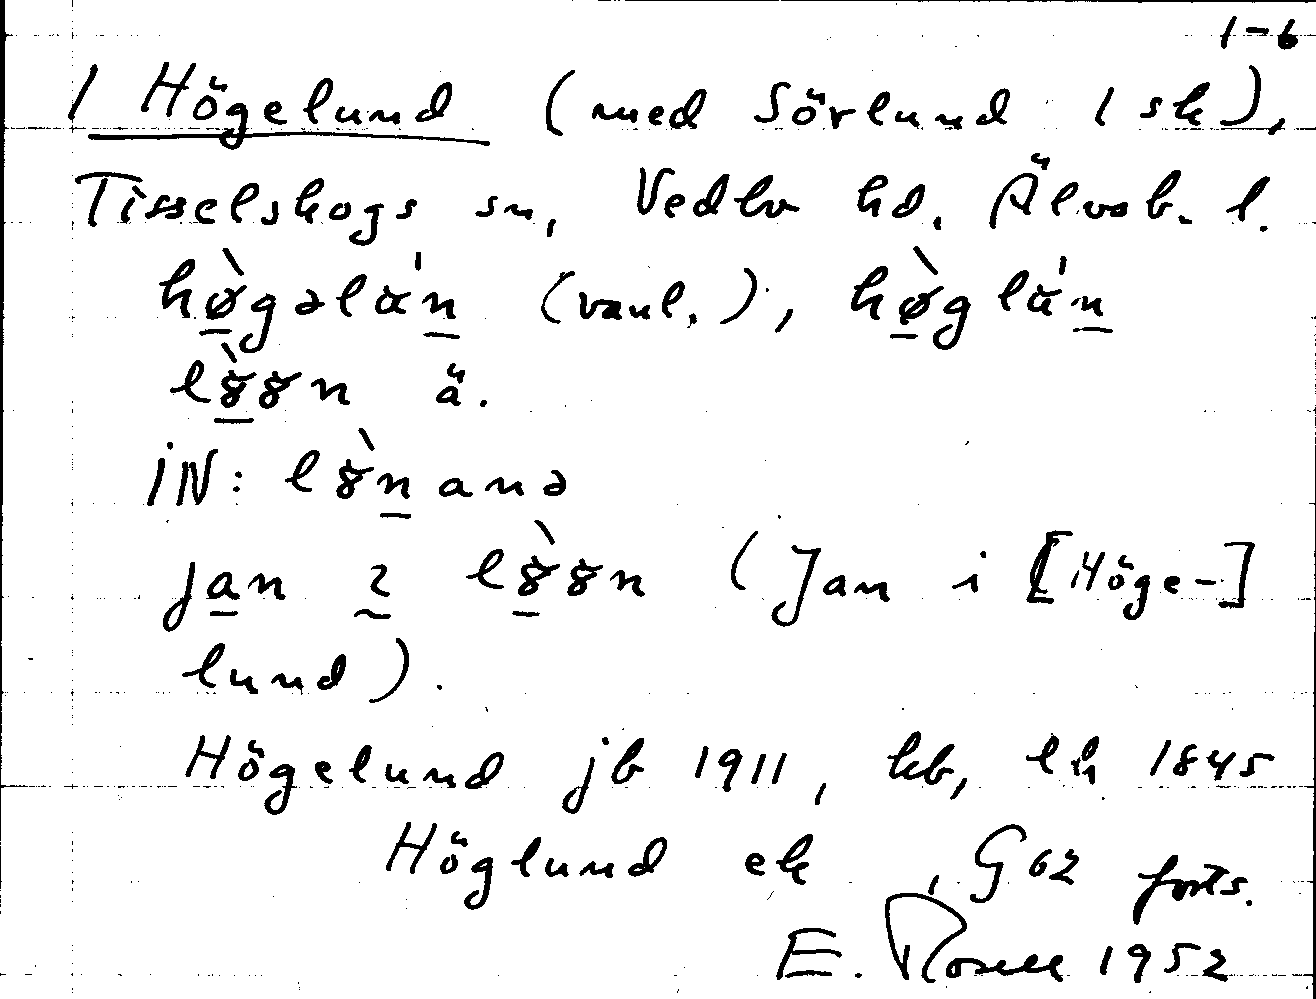 1-6
1 Högelund (med Sörlund 1 sk),
Tisselskogs sn, Vedbo hd. Älvsb. l.
hø̀gəlα'n (vanl.), hø̀glα'n
lȣ̀ȣn ä.
iN: lȣ̀nanə
jan ɿ lȣ̀ȣn (Jan i [Höge-]
lund).
Högelund jb 1911, kb, lh 1845
Höglund ek, G 62 forts.
E. Rosell 1952